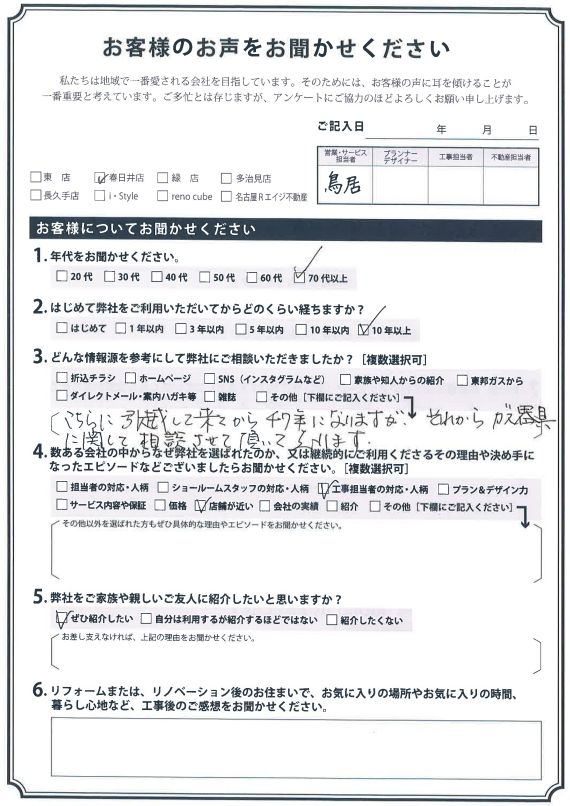 お客様のお声をお聞かせください
私たちは地域で一番愛される会社を目指しています。そのためには、お客様の声に耳を傾けることが
一番重要と考えています。ご多忙とは存じますが、アンケートにご協力のほどよろしくお願い申し上げます。
ご記入日 年 月 日
営業・サービス担当者 プランナーデザイナー 工事担当者 不動産担当者
鳥居
□東 店 ☑春日井店 □緑 店 □多治見店
□長久手店 □i・Style □reno cube □名古屋Rエイジ不動産
お客様についてお聞かせください
1. 年代をお聞かせください。
□20代 □30代 □40代 □50代 □60代 ☑70代以上
2. はじめて弊社をご利用いただいてからどのくらい経ちますか？
□はじめて □1年以内 □3年以内 □5年以内 □10年以内 ☑10年以上
3. どんな情報源を参考にして弊社にご相談いただきましたか？［複数選択可］
□折込チラシ □ホームページ □SNS（インスタグラムなど） □家族や知人からの紹介 □東邦ガスから
□ダイレクトメール・案内ハガキ等 □雑誌 □その他［下欄にご記入ください］
こちらに引越して来てから47年になりますが、それからガス器具
に関して相談させて頂いております.
4. 数ある会社の中からなぜ弊社を選ばれたのか、又は継続的にご利用くださるその理由や決め手に
なったエピソードなどございましたらお聞かせください。［複数選択可］
□担当者の対応・人柄 □ショールームスタッフの対応・人柄 ☑工事担当者の対応・人柄 □プラン&デザイン力
□サービス内容や保証 □価格 ☑店舗が近い □会社の実績 □紹介 □その他［下欄にご記入ください］
その他以外を選ばれた方もぜひ具体的な理由やエピソードをお聞かせください。
5. 弊社をご家族や親しいご友人に紹介したいと思いますか？
☑ぜひ紹介したい □自分は利用するが紹介するほどではない □紹介したくない
お差し支えなければ、上記の理由をお聞かせください。
6. リフォームまたは、リノベーション後のお住まいで、お気に入りの場所やお気に入りの時間、
暮らし心地など、工事後のご感想をお聞かせください。